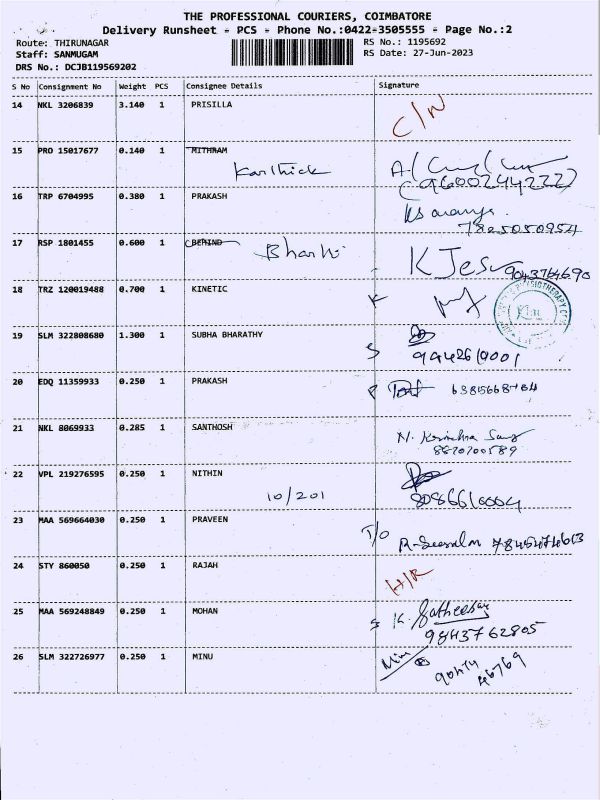 THE PROFESSIONAL COURIERS, COIMBATORE
Delivery Runsheet - PCS - Phone No.:0422-3505555 - Page No.:2
Route: THIRUNAGAR RS No.: 1195692
Staff: SANMUGAM RS Date: 27-Jun-2023
DRS No.: DCJB119569202
S No Consignment No Weight PCS Consignee Details Signature
14 NKL 3206839 3.140 1 PRISILLA
C/N
15 PRO 15017677 0.140 1 MITHRAM
Karthick
9600244222
16 TRP 6704995 0.380 1 PRAKASH
7825050954
17 RSP 1801455 0.600 1 BEHIND
Bharhi K Jesu 9043764690
18 TRZ 120019488 0.700 1 KINETIC
19 SLM 322808680 1.300 1 SUBHA BHARATHY
S 9942610001
20 EDQ 11359933 0.250 1 PRAKASH
21 NKL 8069933 0.285 1 SANTHOSH
8870700589
22 VPL 219276595 0.250 1 NITHIN
10/201 8086610004
23 MAA 569664030 0.250 1 PRAVEEN
T/O 7845474613
24 STY 860050 0.250 1 RAJAH
H/R
25 MAA 569248849 0.250 1 MOHAN
S K. Satheesh
9843762805
26 SLM 322726977 0.250 1 MINU
Minu
46769